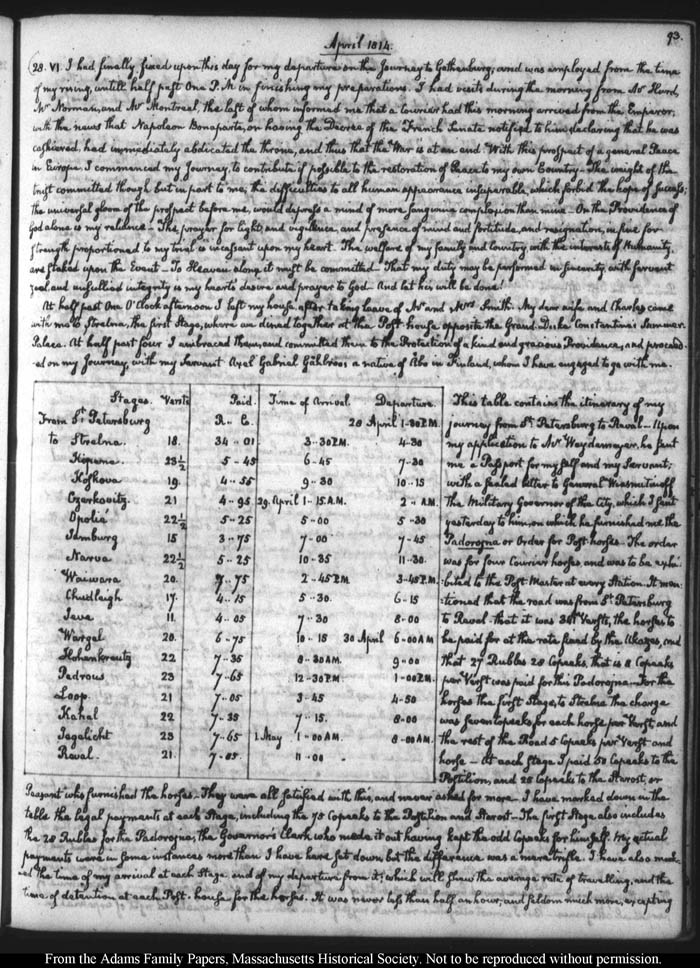 93.
April 1814.
28. VI. I had finally fixed upon this day for my departure on the Journey to Gothenburg; and was employed from the time
of my rising, untill half past One P.M. in finishing my preparations. I had visits during the morning from Mr Hurd,
Mr Norman, and Mr Montreal, the last of whom informed me that a Courier had this morning arrived from the Emperor,
with the news that Napoleon Bonaparte, on having the Decree of the French Senate notified to him, declaring that he was
cashiered, had immediately abdicated the throne, and thus that the War is at an end. With this prospect of a general Peace
in Europe I commenced my Journey, to contribute if possible to the restoration of Peace to my own Country. The weight of the
trust committed though but in part to me; the difficulties to all human appearance insuperable, which forbid the hope of success;
the universal gloom of the prospect before me, would depress a mind of more sanguine complexion than mine. On the Providence of
God alone is my reliance. The prayer for light, and vigilance, and presence of mind and fortitude, and resignation, in fine for
strength proportioned to my trial is incessant upon my heart. The welfare of my family and Country, with the interests of Humanity
are staked upon the Event. To Heaven alone it must be committed. That my duty may be performed in sincerity, with fervent
zeal, and unsullied integrity is my heart's desire and prayer to God. And let his will be done!
At half past One O'Clock afternoon I left my house, after taking leave of Mr and Mrs Smith. My dear wife and Charles came
with me to Strelna, the first Stage, where we dined together at the Post house opposite the Grand Duke Constantine's Summer
Palace. At half past four I embraced them, and committed them to the Protection of a kind and gracious Providence, and proceed-
-ed on my Journey, with my Servant Axel Gabriel Gåhlroos a native of Åbo in Finland, whom I have engaged to go with me.
Stages. Versts Paid. Time of Arrival Departure.
From St Petersburg R.. C. 28 April 1-30 P.M.
to Strelna. 18. 34..01 3..30 P.M. 4-30
Kipene. 23½ 5-45 6-45 7-30
Koskova 19. 4..55 9..30 10..15
Czerkovitz. 21 4..95 29. April 1..15 A.M. 2.. A.M.
Opolie 22½ 5-25 5-00 5-30
Jamburg 15 3..75 7-00 7-45
Narva 22½ 5-25 10-35 11-30.
Waiwara 20. 7-75 2-45 P.M 3-45 P.M.
Chudleigh 17. 4..15 5-30. 6-15
Jeve 11. 4..05 7-30 8-00
Wargel 20. 6-75 10-15 30 April 6-00 A.M
Hohenkreutz 22 7-35 8-30 A.M. 9-00
Padrous 23 7-65 12-30 P.M. 1-00 P.M.
Loop. 21 7..05 3-45 4-50
Kahal 22 7-35 7-15. 8-00
Jegelicht 23 7-65 1 May 1-00 A.M. 8-00 A.M.
Raval. 21. 7..05 11-00
This table contains the itinerary of my
journey from St Petersburg to Raval. Upon
my application to Mr Weydemeyer, he sent
me a Passport for myself and my Servant;
with a sealed letter to General Wiasmitinoff
the Military Governor of the City, which I sent
yesterday to him, on which he furnished me the
Padorogna or Order for Post-horses. The order
was for four Courier horses, and was to be exhi-
bited to the Post-Master at every Station. It men-
tioned that the road was from St Petersburg
to Raval. that it was 341 Versts, the horses to
be paid for at the rate fixed by the Ukazes, and
that 27 Rubles 28 Copeaks, that is 8 Copeaks
per Verst was paid for this Padorogna. For the
horses the first Stage, to Strelna the charge
was seven Copeaks for each horse per Verst and
the rest of the Road 5 Copeaks per Verst and
horse. At each Stage I paid 50 Copeaks to the
Postilion, and 25 Copeaks to the Starost, or
Peasant who furnished the horses. They were all satisfied with this, and never asked for more. I have marked down in the
table the legal payments at each Stage, including the 75 Copeaks to the Postilion and Starost. The first Stage also includes
the 28 Rubles for the Padorogna; the Governor's Clerk who made it out having kept the odd Copeaks for himself. My actual
payments were in some instances more than I have here set down, but the difference was a mere trifle. I have also mark-
-ed the time of my arrival at each Stage, and of my departure from it; which will shew the average rate of travelling, and the
time of detention at each Post-house for the horses. It was never less than half an hour, and seldom much more, excepting
From the Adams Family Papers, Massachusetts Historical Society. Not to be reproduced without permission.